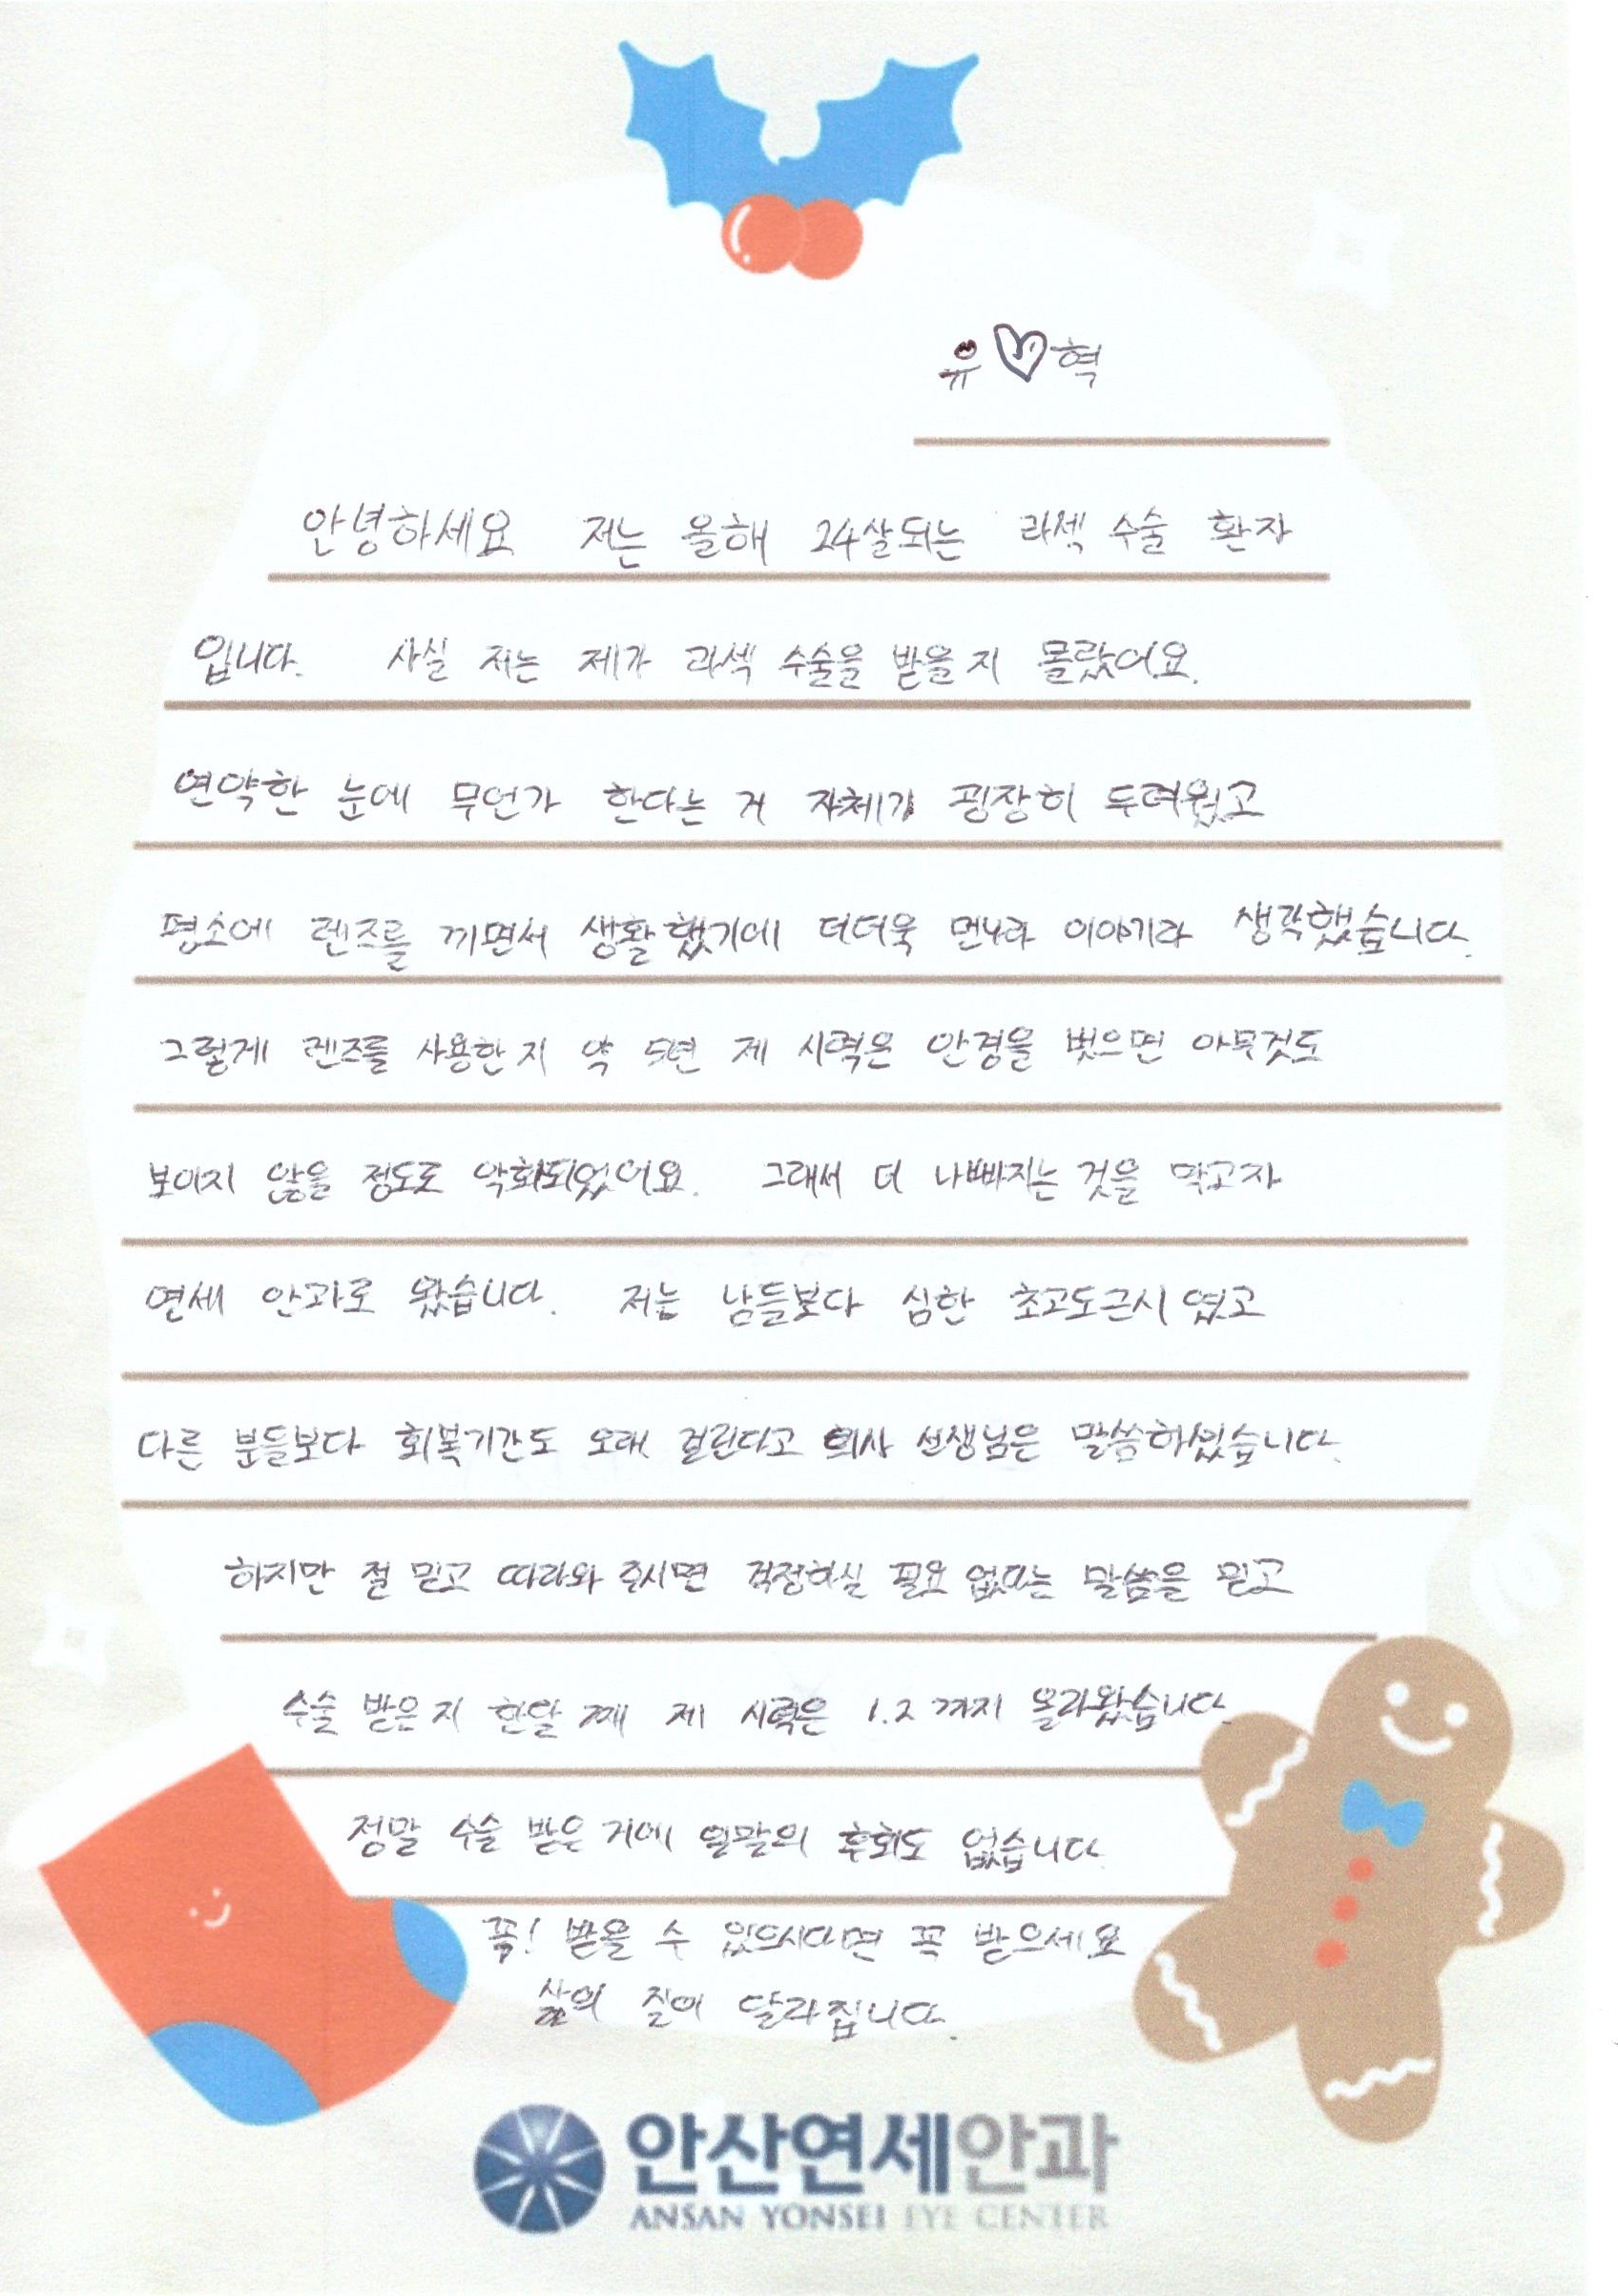 유♡혁
안녕하세요 저는 올해 24살되는 라섹 수술 환자
입니다. 사실 저는 제가 라섹 수술을 받을지 몰랐어요.
연약한 눈에 무언가 한다는 거 자체가 굉장히 두려웠고
평소에 렌즈를 끼면서 생활했기에 더더욱 먼나라 이야기라 생각했습니다.
그렇게 렌즈를 사용한지 약 5년 제 시력은 안경을 벗으면 아무것도
보이지 않을 정도로 악화되었어요. 그래서 더 나빠지는 것을 막고자
연세 안과로 왔습니다. 저는 남들보다 심한 초고도근시였고
다른 분들보다 회복기간도 오래 걸린다고 의사 선생님은 말씀하셨습니다.
하지만 절 믿고 따라와 주시면 걱정하실 필요 없다는 말씀을 믿고
수술 받은지 한달 째 제 시력은 1.2 까지 올라왔습니다.
정말 수술 받은 거에 일말의 후회도 없습니다
꼭! 받을 수 있으시다면 꼭 받으세요
삶의 질이 달라집니다.
안산연세안과
ANSAN YONSEI EYE CENTER